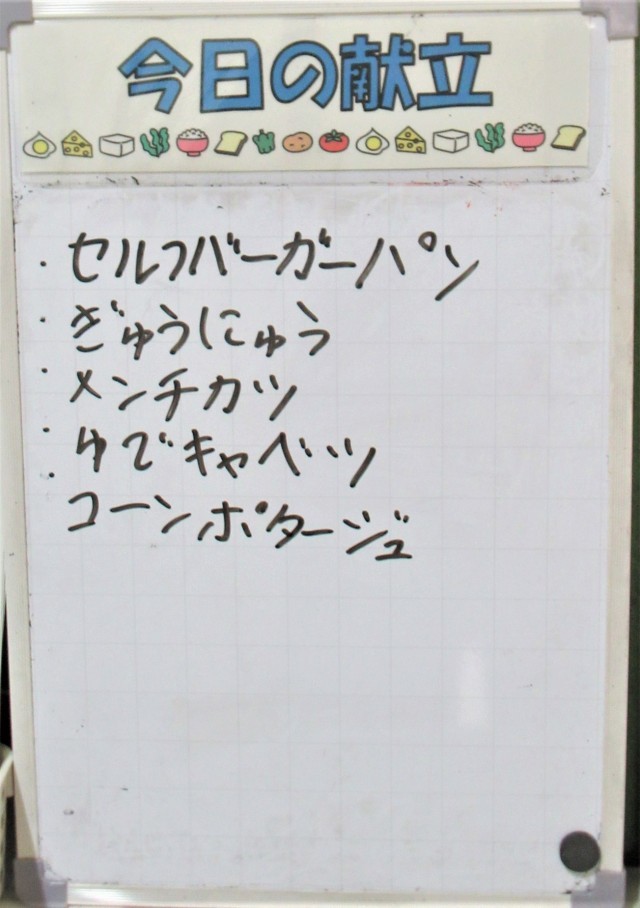 今日の献立
・セルフバーガーパン
・ぎゅうにゅう
・メンチカツ
・ゆでキャベツ
・コーンポタージュ